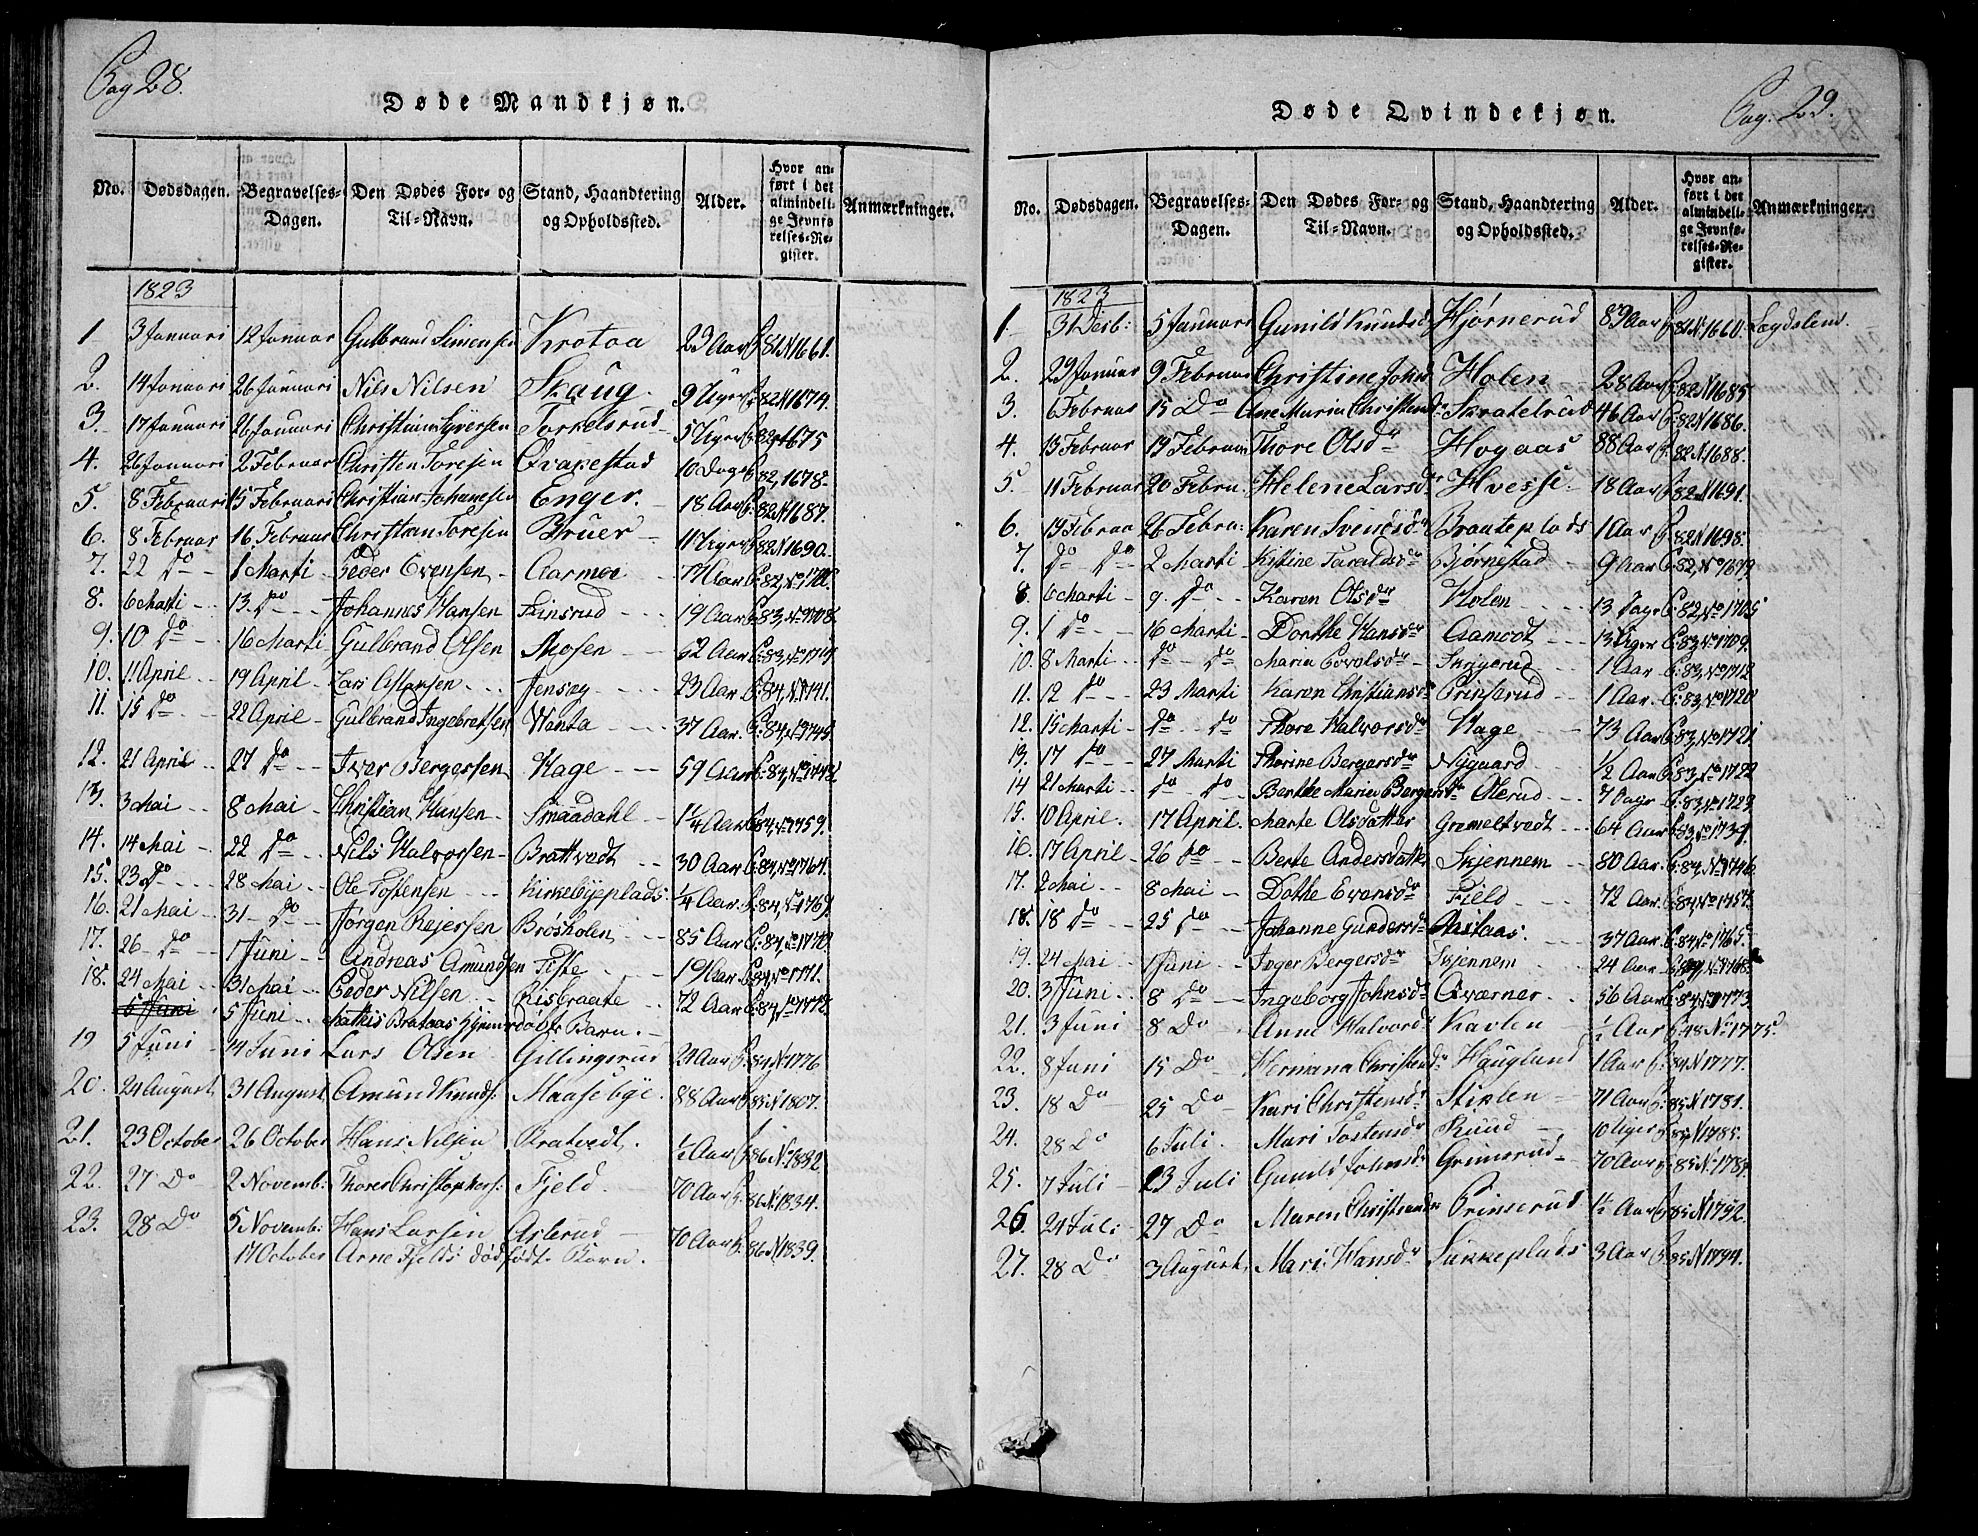 Pag 28.
Døde Mandkjøn.
No. Dødsdagen. Begravelses-Dagen. Den Dødes For- og Til-Navn. Stand, Haandtering og Opholdssted. Alder. Hvor anført i det almindelige Jevnførelses-Register. Anmærkninger.
1823
1 3 Januari 12 Januar Gulbrand Simensen Krotoa 23 Aar P 81 N 1661.
2. 14 Januari 26 Januari Nils Nilsen Skaug. 9 Uger P 82 N 1674.
3. 17 Januari 26 Januari Christian Syversen Torkelsrud 5 Uger P 82 N 1675
4. 26 Januari 2 Februar Christen Toresen Qvapestad 10 Dage P 82, 1678
5. 8 Februari 15 Februari Christian Johanesen Enger. 18 Aar P. 82 N 1687.
6. 8 Februar 16 Februar Christian Toresen Bruer 11 Uger P 82 N 1690.
7. 22 Do 1 Marti Peder Evensen Aarmoe 77 Aar P. 82, No
8. 6 Marti 13 Do Johannes Hansen Finsrud 19 Aar P. 83, No 1708.
9. 10 Do 16 Marti Gulbrand Olsen Mosen 62 Aar P. 83, No
10. 11 April 19 April Lars Jensøy 23 Aar P. 84, N. 1741.
11. 15 Do 22 April Gulbrand Ingebretsen Wanta 37 Aar. P. 84, No 1745.
12. 21 April 27 Do Iver Bergersen Hage 59 Aar P. 84, No 1748
13. 3 Mai 8 Mai Christian Hansen Smaadahl 1 1/4 Aar P. 84, No 1759.
14. 14 Mai 22 Do Nils Halvorsen Brattvedt 30 Aar P. 84, No 1764.
15. 23 Do 28 Mai Ole Tostensen Kirkebyeplads 1/4 Aar. P. 84, No 1769.
16. 21 Mai 31 Do Jørgen Rejersen Brøsholen 85 Aar P. 84, No 1770.
17. 26 Do 1 Juni Andreas Amundsen Tiste 19 Aar P. 84, No 1771.
18. 24 Mai 31 Mai Peder Nilsen Risbraate 72 Aar P. 84, No 1772.
5 Juni 5 Juni Mathis Brataas Hjemmedøbte Barn.
19 5 Juni 14 Juni Lars Olsen Gillingsrud 23 Aar P. 84 N 1776
20. 24 August 31 August Amund Knuds: Maasebye. 88 Aar P 85 N 1807.
21. 23 October 26 October Hans Nilsen Bratvedt. 1/2 Aar P 86 N. 1832
22. 27 Do 2 Novemb: Thorer Christophers: Fjeld. 70 Aar P. 86 N. 1834.
23. 28 Do 5 Novemb: Hans Larsen Aslerud 70 Aar P. 86 N 1839.
17 October Arne Fjelds dødfødte Barn.
Pag. 29.
Døde Qvindekjøn.
No. Dødsdagen. Begravelses-Dagen. Den Dødes For- og Til-Navn. Stand, Haandtering og Opholdssted. Alder. Hvor anført i det almindelige Jevnførelses-Register. Anmærkninger.
1823
1 31 Desb: 5 Januari Gunild Knudsd Hjørnerud 89 Aar P 81 N 1660. Lægdslem.
2. 29 Januar 9 Februar Christine Johnsd Holen 28 Aar P 82 N 1685
3. 6 Februar 15 Do Ane Maria Christensdr Skratelrud 46 Aar P. 82 N 1686.
4. 13 Februar 19 Februar Thore Olsdr Hogaas 88 Aar P. 82 N 1688.
5. 11 Februar 20 Febru. Helene Larsdr Hvessi 18 Aar P 82 N 1691.
6. 19 Februa 26 Febru: Karen Svendsdr Braateplads 1 Aar P. 82 N 1698.
7. Do Do 2 Marti Kistine Taraldsdr Bjørnestad 9 Aar P. 82, No 1699
8. 6 Marti 9. Do Karen Olsdr Holen 13 Dage P. 82, No 1705
9. 1 Do 16 Marti Dorthe Hansdr Aamodt 13 Uger P. 83, No 1709.
10. 8 Marti Do Do Maria Skjgerud 1 Aar P. 83, No 1712
11. 12 Do 23 Marti Karen Christiansdr Prinserud 1 Aar. P. 83, No 1720
12. 15 Marti Do Do Thore Halvorsdr Hage 73 Aar P. 83, No 1721
13. 17 Do 27 Marti Thorine Bergersdr Nygaard 1/2 Aar P. 83, No 1722
14 21 Marti Do Do Berthe Maria Bergersdr Olerud 7 Dage P. 83, No 1723
15. 10 April. 17 April. Marte Olsdatter Gremeltvedt 64 Aar P. 83, No 1739.
16. 17 April 26 Do Berte Andersdatter Skjennem 80 Aar. P. 84, No 1746
17. 2 Mai 8 Mai Dothe Evensdr Field 72 Aar. P. 84, No 1757.
18. 18 Do 25 Do Johanne Gundersd 37 Aar P. 84, No 1765.
19. 24 Mai 1 Juni Inger Bergersdr Skjennem 24 Aar P. 84, No 1768
20. 3 Juni 8 Do Ingeborg Johnsdr Qværner 56 Aar P. 84, No 1773
21. 3 Juni 8 Do Anne Halvordr Kavlen 1/2 Aar P. 48 No 1775.
22. 8 Juni 15 Do Hermana Christensdr Haugland 1 Aar P. 84 N 1777.
23. 18 Do 25 Do Kari Christensdr Stiklen 71 Aar P. 85 N 1781.
24. 28 Do 6 Juli. Mari Tostensdr Ruud 10 Uger P 85 N 1785.
25. 7 Juli 13 Juli Gunild Johnsdr Grimsrud 70 Aar P. 85 N. 1787.
26. 24 Juli 27 Do Maren Christiansdr Prinserud 1 1/2 Aar P. 85 N 1792.
27. 28 Do 3 August. Mari Hansdr Sukkeplads 3 Aar P 85 N 1794.